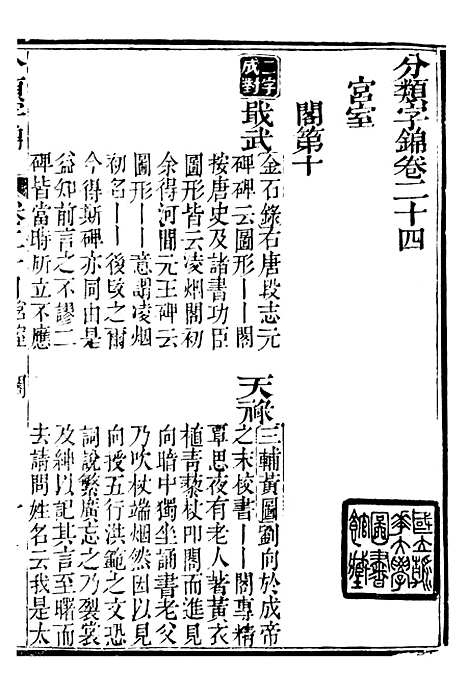 分類字錦卷二十四
宮室
閣第十
二字
成對
戢武
金石錄右唐段志元
碑碑云圖形――閣
按唐史及諸書功臣
圖形皆云凌烟閣初
余得河間元王碑云
圖形――意謂凌烟
初名――後更之爾
今得斯碑亦同由是
益知前言之不謬二
碑皆當時所立不應
天祿
三輔黃圖劉向於成帝
之末校書――閣專精
覃思夜有老人著黃衣
植青藜杖叩閣而進見
向暗中獨坐誦書老父
乃吹杖端烟然因以見
向授五行洪範之文恐
詞說繁廣忘之乃裂裳
及紳以記其言至曙而
去請問姓名云我是太